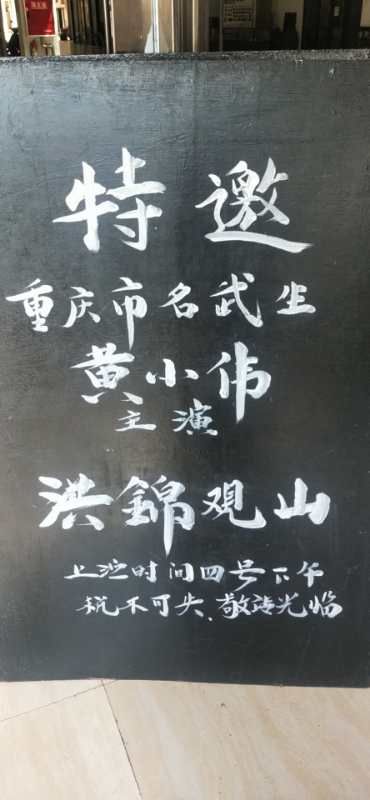 特邀
重庆市名武生
黄小伟
主演
洪錦观山
上演时间四号下午
机不可失、敬请光临